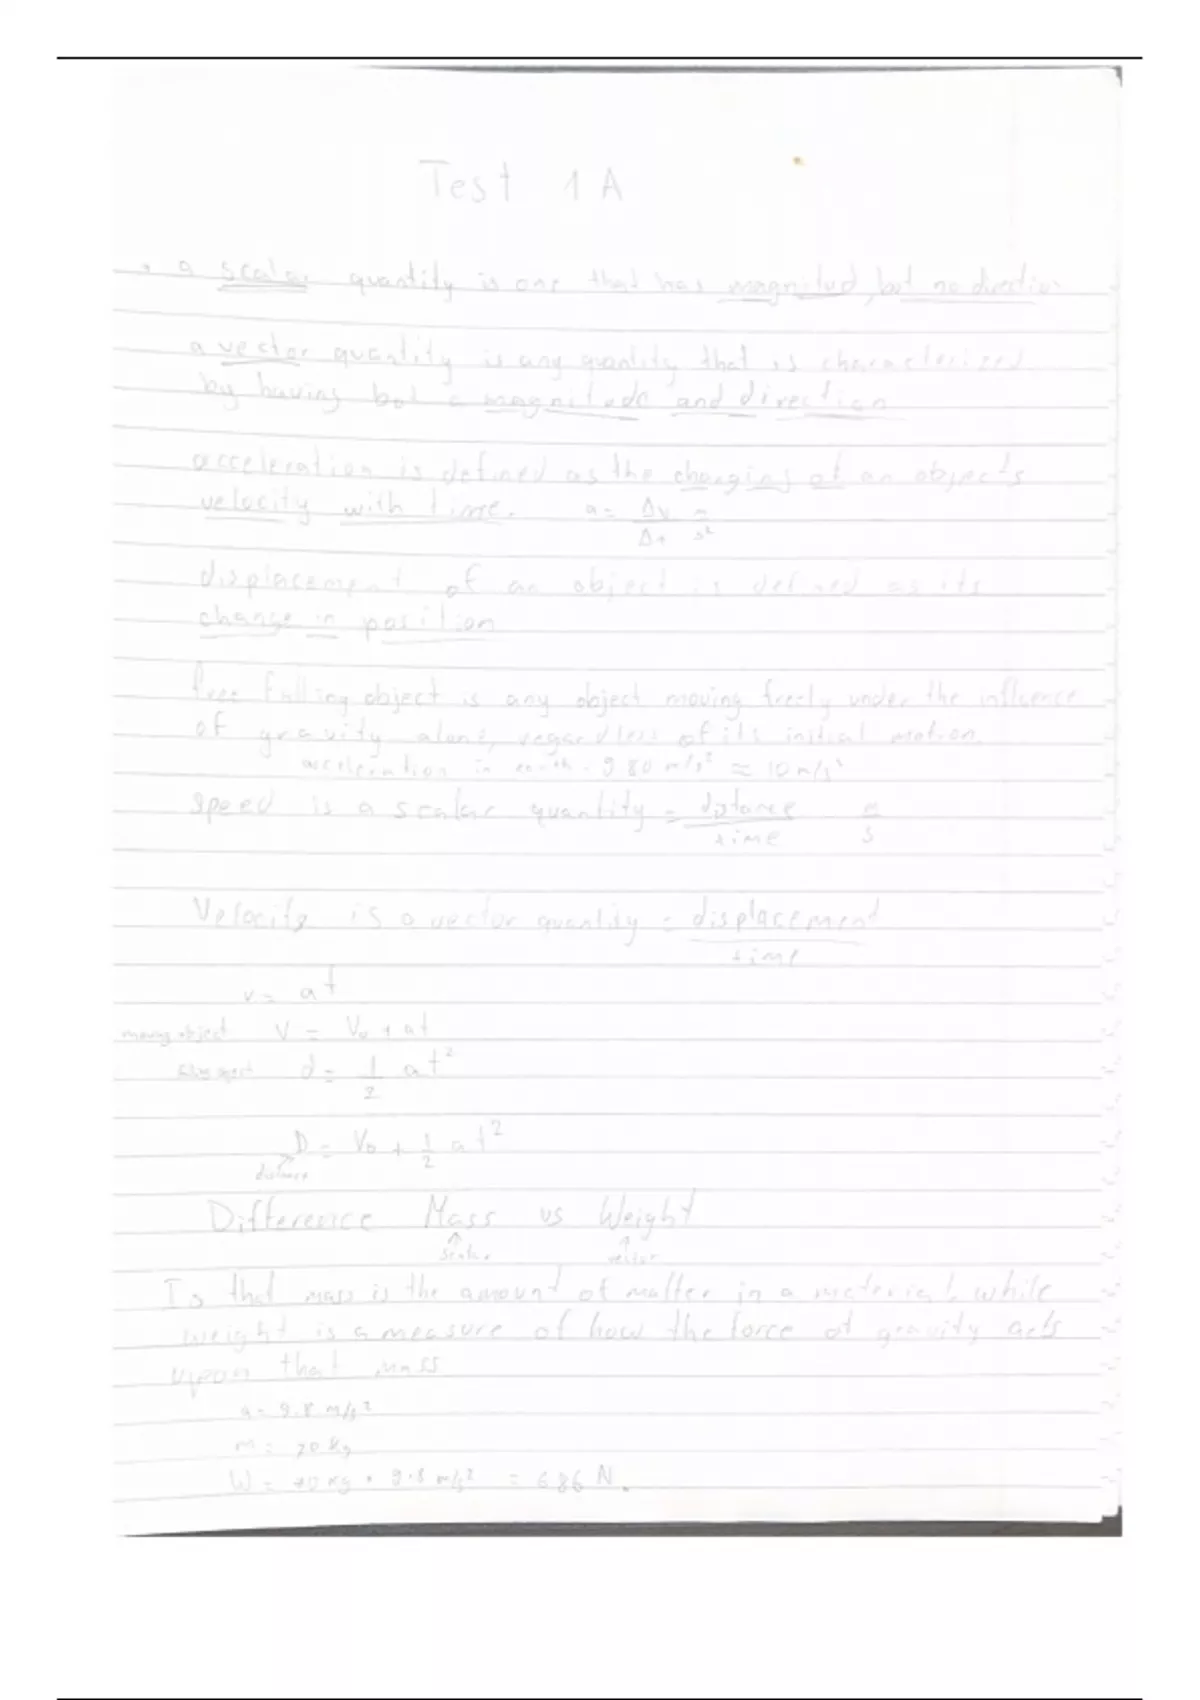 Test 1A
. a scalar quantity is one that has magnitud, but no direction
a vector quantity is any quantity that is characterized
by having bot a magnitude and direction
acceleration is defined as the changing of an objects
velocity with time. a = Δv/Δt m/s²
displacement of an object is defined as its
change in position
free falling object is any object moving freely under the influence
of gravity alone, regardless of its initial motion.
acceleration in earth = 9.80 m/s² ≈ 10 m/s²
speed is a scalar quantity = distance/time m/s
Velocity is a vector quantity = displacement/time
v = at
moving object V = V₀ + at
d = 1/2 at²
D = V₀ + 1/2 at²
distance
Difference Mass vs Weight
scalar vector
Is that mass is the amount of matter in a material, while
weight is a measure of how the force of gravity acts
upon that mass
a = 9.8 m/s²
m = 70 kg
W = 70 kg • 9.8 m/s² = 686 N.